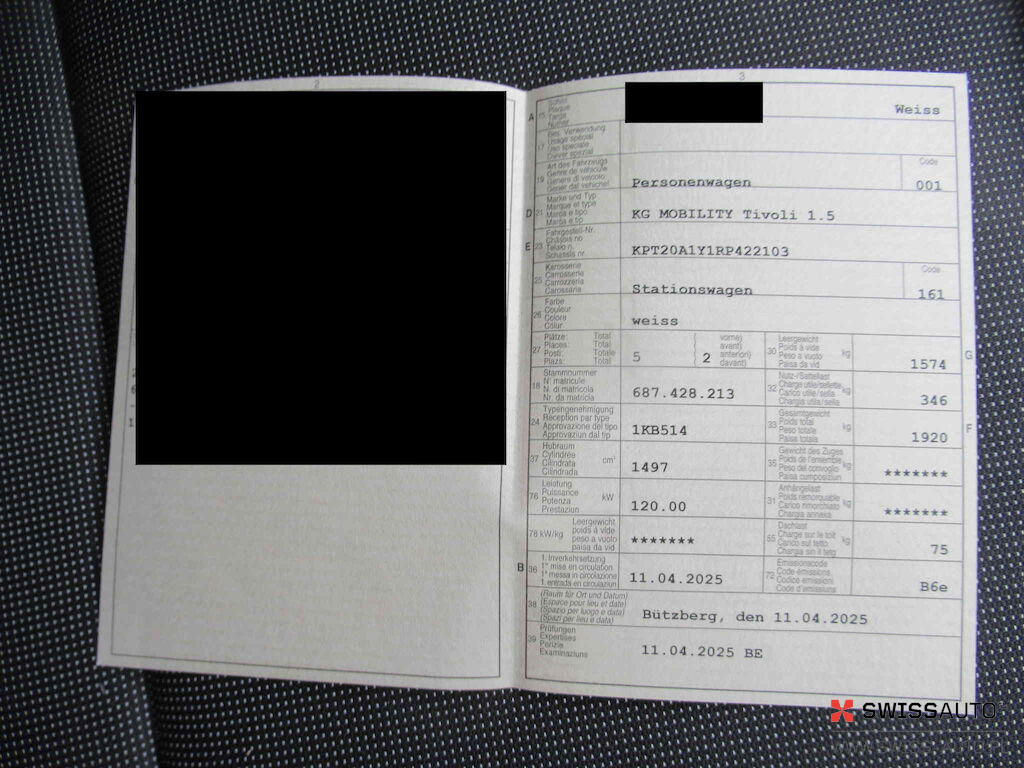 2
3
A
15
Schild
Plaque
Targa
Numer
Weiss
17
Bes. Verwendung
Usage spécial
Uso speciale
Diever spezial
19
Art des Fahrzeugs
Genre de véhicule
Genere di veicolo
Gener dal vehichel
Personenwagen
Code
001
D
21
Marke und Typ
Marque et type
Marca e tipo
Marca e tip
KG MOBILITY Tivoli 1.5
E
23
Fahrgestell-Nr.
Châssis no
Telaio n.
Schassis nr.
KPT20A1Y1RP422103
25
Karosserie
Carrosserie
Carrozzeria
Carossaria
Stationswagen
Code
161
26
Farbe
Couleur
Colore
Colur
weiss
27
Plätze: Total
Places: Total
Posti: Totale
Plazs: Total
5
( vorne)
( avant)
2 anteriori)
( davant)
30
Leergewicht
Poids à vide
Peso a vuoto
Paisa da vid
kg
1574
G
18
Stammnummer
N° matricule
N. di matricola
Nr. da matricla
687.428.213
32
Nutz-/Sattellast
Charge utile/sellette
Carico utile/sella
Chargia utila/sella
kg
346
24
Typengenehmigung
Réception par type
Approvazione del tipo
Approvaziun dal tip
1KB514
33
Gesamtgewicht
Poids total
Peso totale
Paisa totala
kg
1920
F
37
Hubraum
Cylindrée
Cilindrata
Cilindrada
cm³
1497
35
Gewicht des Zuges
Poids de l'ensemble
Peso del convoglio
Paisa cumposiziun
kg
*******
76
Leistung
Puissance
Potenza
Prestaziun
kW
120.00
31
Anhängelast
Poids remorquable
Carico rimorchiato
Chargia annexa
kg
*******
78 kW/kg
Leergewicht
poids à vide
peso a vuoto
paisa da vid
*******
55
Dachlast
Charge sur le toit
Carico sul tetto
Chargia sin il tetg
kg
75
B
36
1. Inverkehrsetzung
1re mise en circulation
1a messa in circolazione
1. entrada en circulaziun
11.04.2025
72
Emissionscode
Code émissions
Codice emissioni
Code d'emissiuns
B6e
38
(Raum für Ort und Datum)
(Espace pour lieu et date)
(Spazio per luogo e data)
(Spazi per lieu e data)
Bützberg, den 11.04.2025
39
Prüfungen
Expertises
Perizie
Examinaziuns
11.04.2025 BE
SWISSAUTO
www.swiss-auto.pl